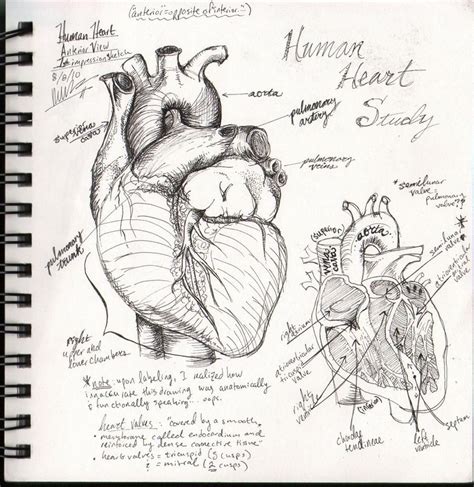 (anterior = opposite of interior..)
Human Heart
Anterior View
1st impression sketch
8/8/10
Human
Heart
Study
aorta
pulmonary
artery
pulmonary
veins
superior
cava
pulmonary
trunk
upper and
lower chambers
* note: upon labeling, I realized how
inaccurate this drawing was anatomically
& functionally speaking... oops.
heart valves: covered by a smooth
membrane called endocardium and
reinforced by dense connective tissue
heart valves = tricuspid (3 cusps)
= mitral (2 cusps)
* semilunar
valve,
pulmonary
valve??
(superior)
vena
cava
aorta
semilunar
valve
atrioventricular
right
atrium
atrioventricular
tricuspid
valve
right
ventricle
chordae
tendineae
left
ventricle
septum